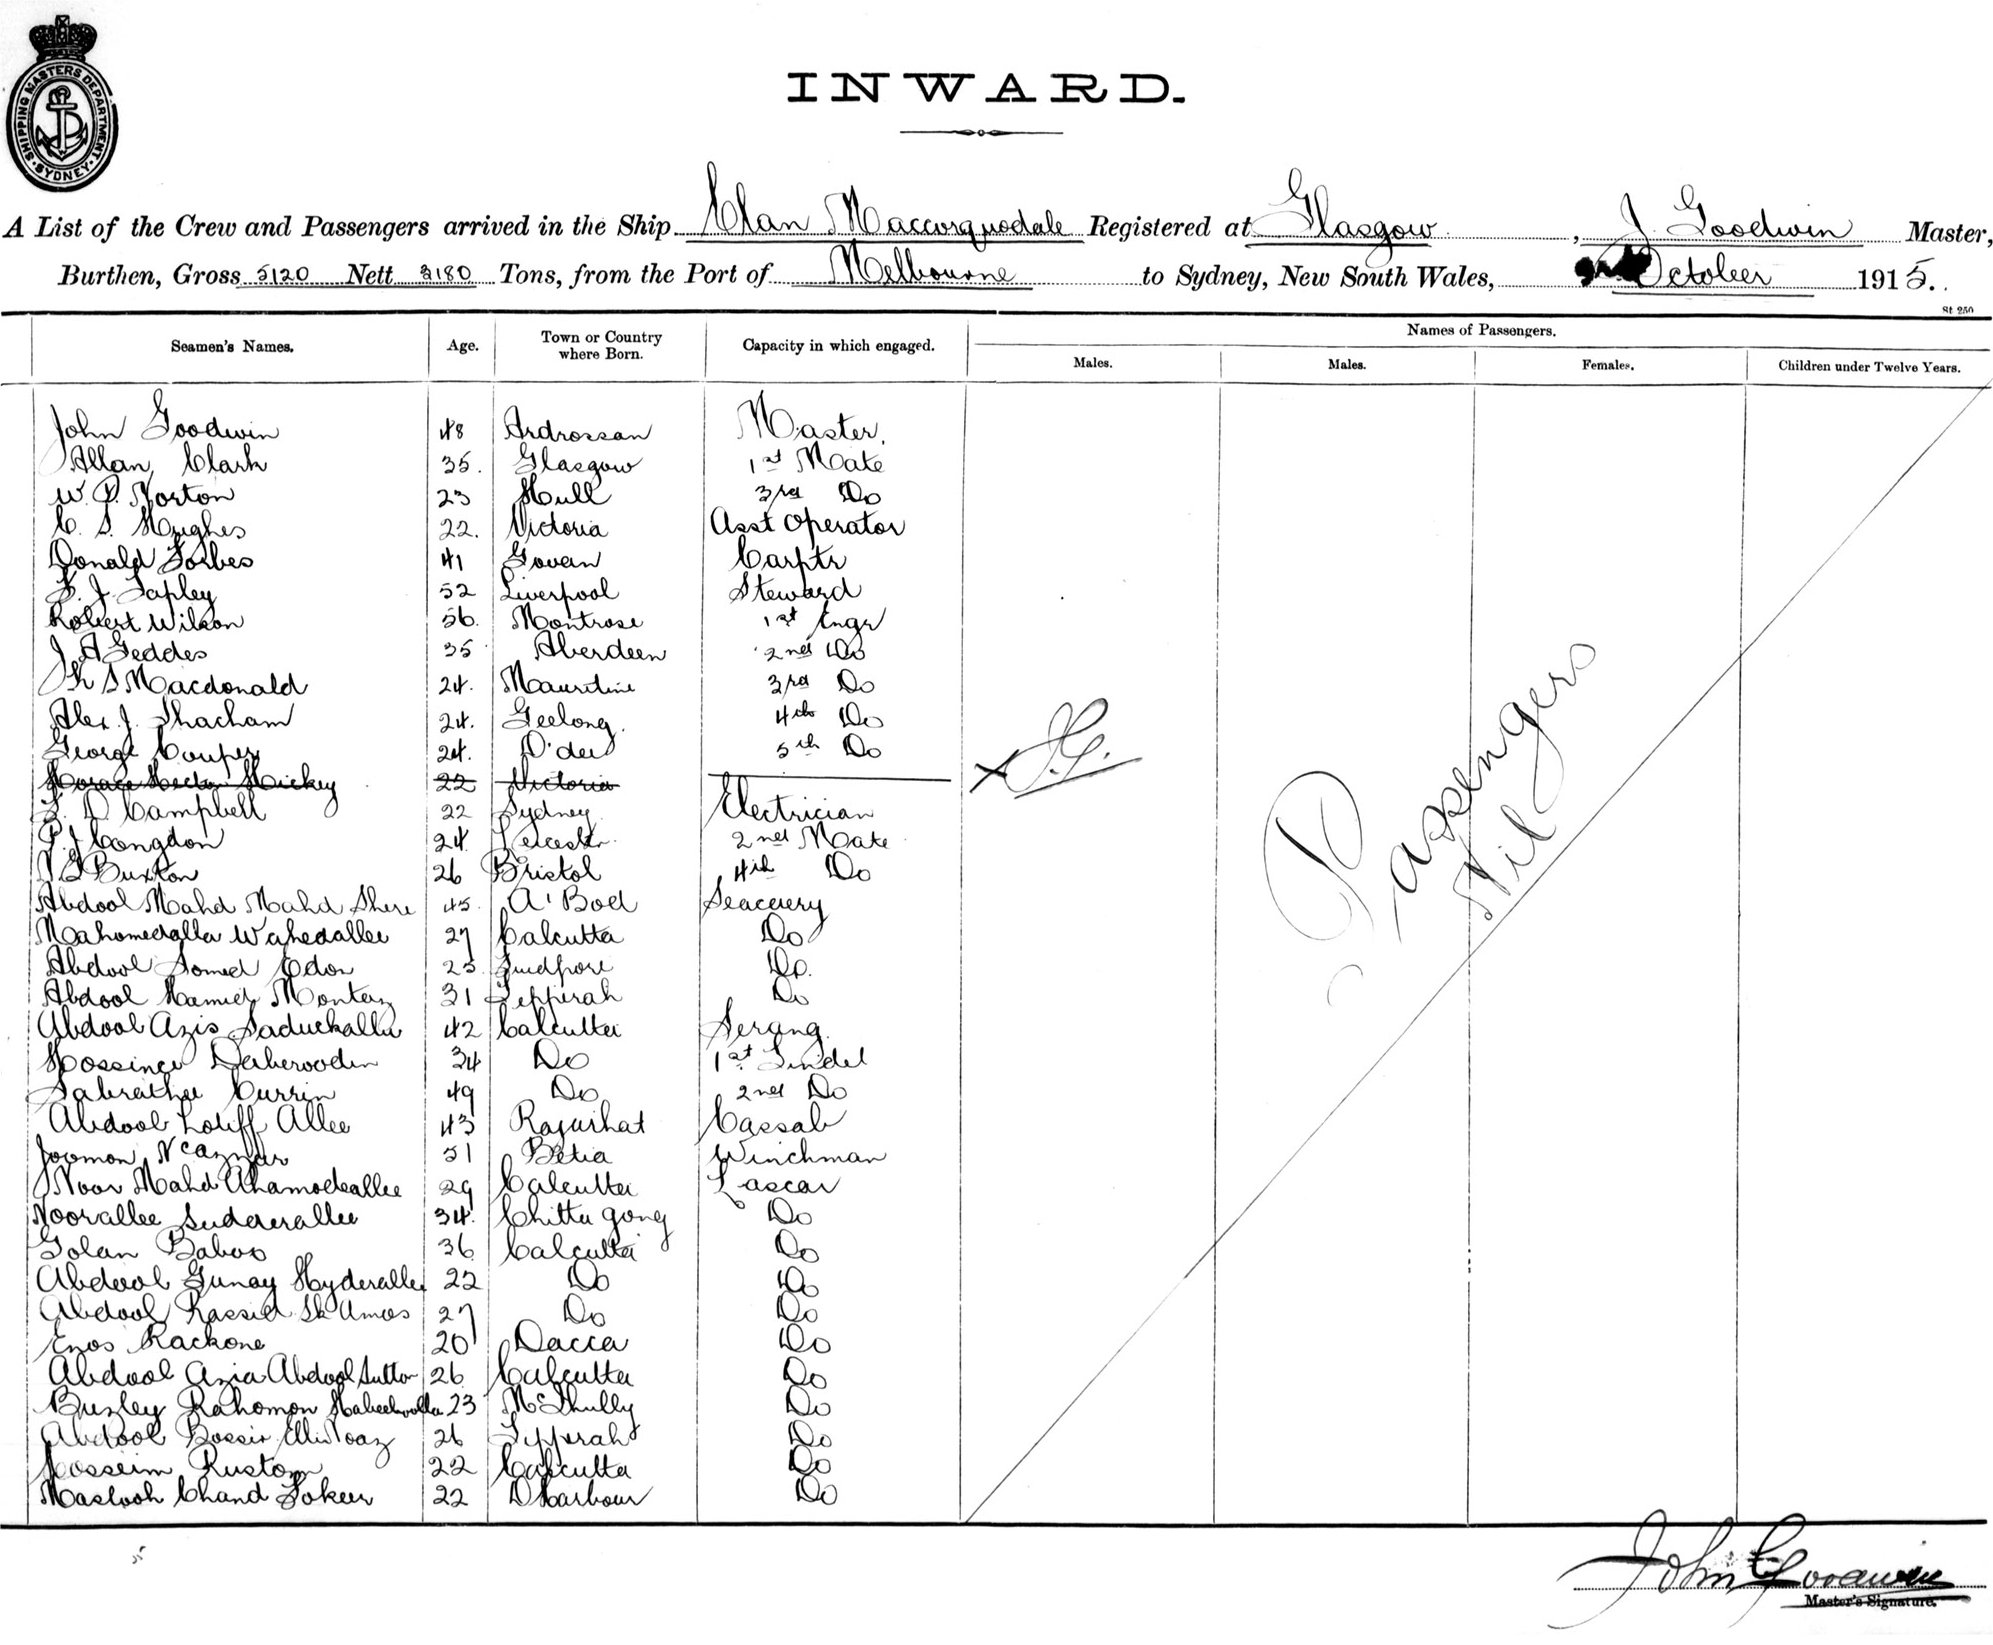 SHIPPING MASTERS DEPARTMENT
SYDNEY
INWARD.
A List of the Crew and Passengers arrived in the Ship Clan Maccorquodale Registered at Glasgow, J. Goodwin Master,
Burthen, Gross 5120 Nett 3180 Tons, from the Port of Melbourne to Sydney, New South Wales, October 1915.
St 250
Seamen's Names. Age. Town or Country where Born. Capacity in which engaged. Names of Passengers.
Males. Males. Females. Children under Twelve Years.
John Goodwin 48 Ardrossan Master.
Allan Clark 35. Glasgow 1st Mate
W. P. Norton 23 Hull 3rd Do
C. S. Hughes 22. Victoria Asst Operator
Donald Forbes 41 Govan Carptr
Tapley 52 Liverpool Steward
Robert Wilson 56. Montrose 1st Engr
J A Geddes 35 Aberdeen 2nd Do
Macdonald 24. 3rd Do
Alex. J. Thacham 24. Geelong. 4th Do
George Couper 24. 5th Do
Horace Hector Hickey 22 Victoria
J.G.
D Campbell 22 Sydney Electrician
P. J Congdon 24. Leicestr. 2nd Mate
Buxton 26 Bristol 4th Do
Abdool Mahd Mahd Shere 45 A'Bod Seacuny
Mahomedalla Wahedallee 27 Calcutta Do
Abdool Somed Edon 25 Do.
Abdool Hamid Montaz 31 Tipperah Do
Abdool Azis Saduckalla 42 Calcutta Serang.
Hossince 34 Do 1st Tindel
Currin 49 Do 2nd Do
Abdool Lotiff Allee 43 Rajarhat Cassab
Joomon 51 Betia Winchman
Noor Mahd Ahamodeallee 29 Calcutta Lascar
Noorallee 34. Chitta gong Do
Golan Baboo 36 Calcutta Do
Abdool Gunay Hyderallee 22 Do Do
Abdool Rassid Sk Amos 27 Do Do
Enos Rackone 20 Dacca Do
Abdool Azia Abdool Suttor 26 Calcutta Do
Buzley Rahomon 23 Do
Abdool Bossir 26 Tipperah Do
Hosseim Rustom 22 Calcutta Do
Chand Fokeer 22 D Harbour Do
Passengers
Nil
John Goodwin
Master's Signature.